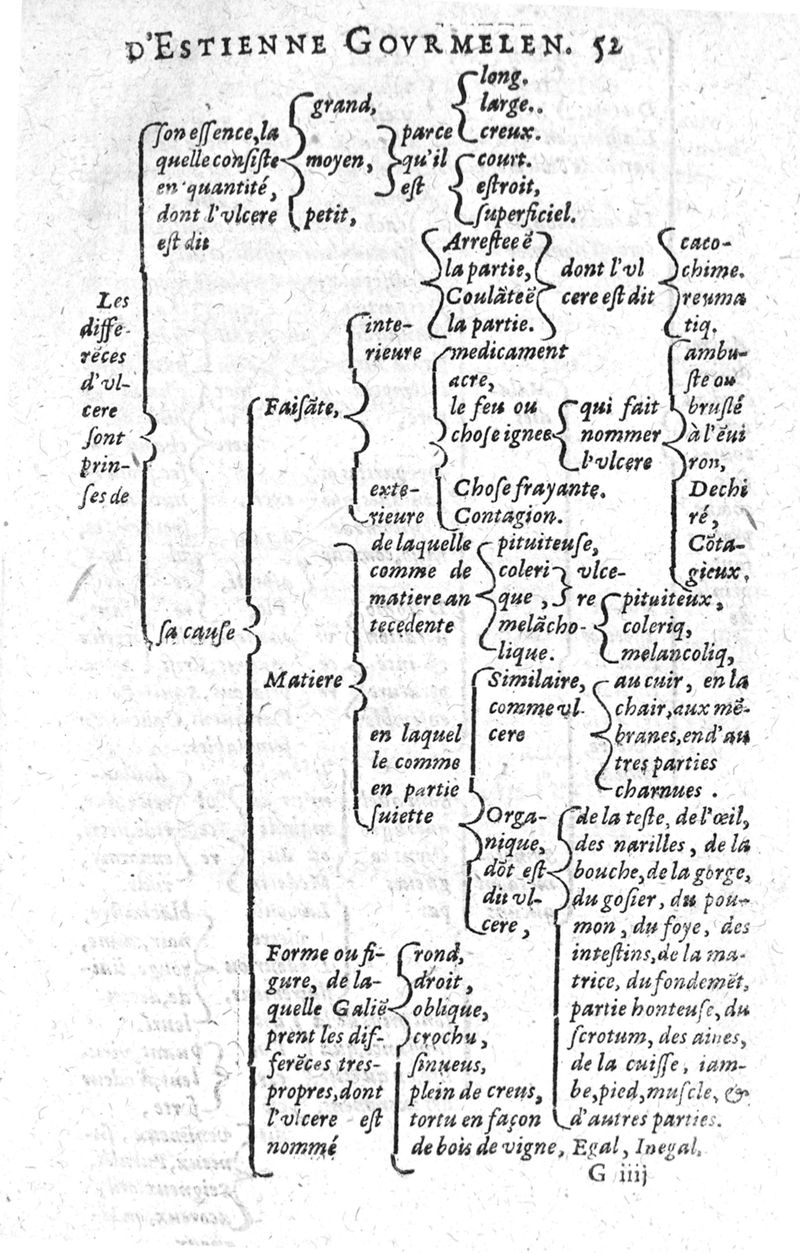 D'ESTIENNE GOVRMELEN. 52
Les
differ-
rẽces
d'vl-
cere
sont
prin-
ses de
son essence, la
quelle consiste
en quantité,
dont l'vlcere
est dit
grand,
moyen,
petit,
parce
qu'il
est
long.
large..
creux.
court.
estroit,
superficiel.
sa cause
Faisãte,
inte-
rieure
Arrestee ẽ
la partie,
Coulãte ẽ
la partie.
dont l'vl
cere est dit
caco-
chime.
reuma
tiq.
exte-
rieure
medicament
acre,
le feu ou
chose ignee
Chose frayante.
Contagion.
qui fait
nommer
l'vlcere
ambu-
ste ou
bruslé
à l'ẽui
ron,
Dechi
ré,
Cõta-
gieux.
Matiere
de laquelle
comme de
matiere an
tecedente
pituiteuse,
coleri
que,
melãcho-
lique.
vlce-
re
pituiteux,
coleriq,
melancoliq,
en laquel
le comme
en partie
suiette
Similaire,
comme vl-
cere
au cuir, en la
chair, aux mẽ-
branes, en d'au
tres parties
charnues .
Orga-
nique,
dõt est
dit vl-
cere,
de la teste, de l'œil,
des narilles, de la
bouche, de la gorge,
du gosier, du pou-
mon, du foye, des
intestins, de la ma-
trice, du fondemẽt,
partie honteuse, du
scrotum, des aines,
de la cuisse, iam-
be, pied, muscle, &
d'autres parties.
Forme ou fi-
gure, de la-
quelle Galiẽ
prent les dif-
ferẽces tres-
propres, dont
l'vlcere est
nommé
rond,
droit,
oblique,
crochu,
sinueus,
plein de creus,
tortu en façon
de bois de vigne, Egal, Inegal.
G iiij